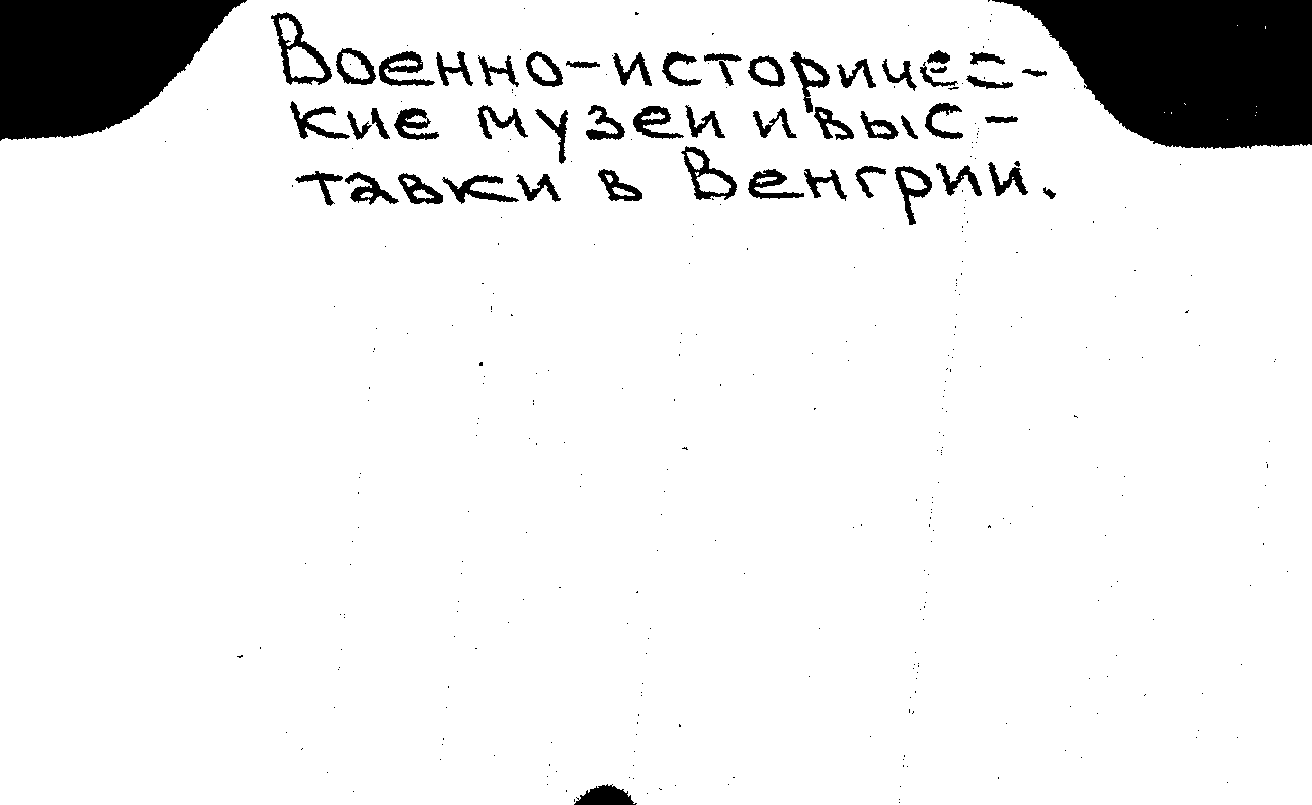 Военно-историчес-
кие музеи и выс-
тавки в Венгрии.